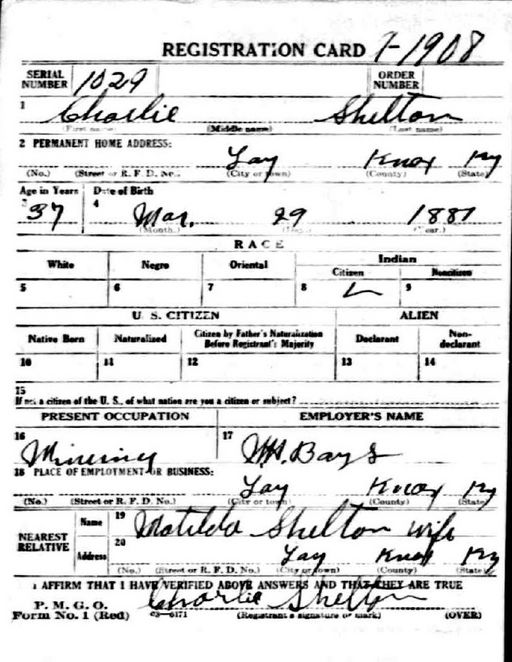 REGISTRATION CARD 7-1908
SERIAL NUMBER 1029 ORDER NUMBER
1 Charlie Shelton
(First name) (Middle name) (Last name)
2 PERMANENT HOME ADDRESS:
Lay Knox Ky
(No.) (Street or R. F. D. No.) (City or town) (County) (State)
Age in Years Date of Birth
3 37 4 Mar. 29 1881
(Month.) (Day.) (Year.)
RACE
White Negro Oriental Indian
Citizen Noncitizen
5 6 7 8 ✓ 9
U. S. CITIZEN ALIEN
Native Born Naturalized Citizen by Father's Naturalization Before Registrant's Majority Declarant Non-declarant
10 11 12 13 14
15
If not a citizen of the U. S., of what nation are you a citizen or subject?
PRESENT OCCUPATION EMPLOYER'S NAME
16 Mining 17 Bays
18 PLACE OF EMPLOYMENT OR BUSINESS:
Lay Knox Ky
(No.) (Street or R. F. D. No.) (City or town) (County) (State)
NEAREST RELATIVE Name 19 Matilda Shelton wife
Address 20 Lay Knox Ky
(No.) (Street or R. F. D. No.) (City or town) (County) (State)
I AFFIRM THAT I HAVE VERIFIED ABOVE ANSWERS AND THAT THEY ARE TRUE
P. M. G. O.
Form No. 1 (Red) 03-6171 Charlie Shelton
(Registrant's signature or mark) (OVER)